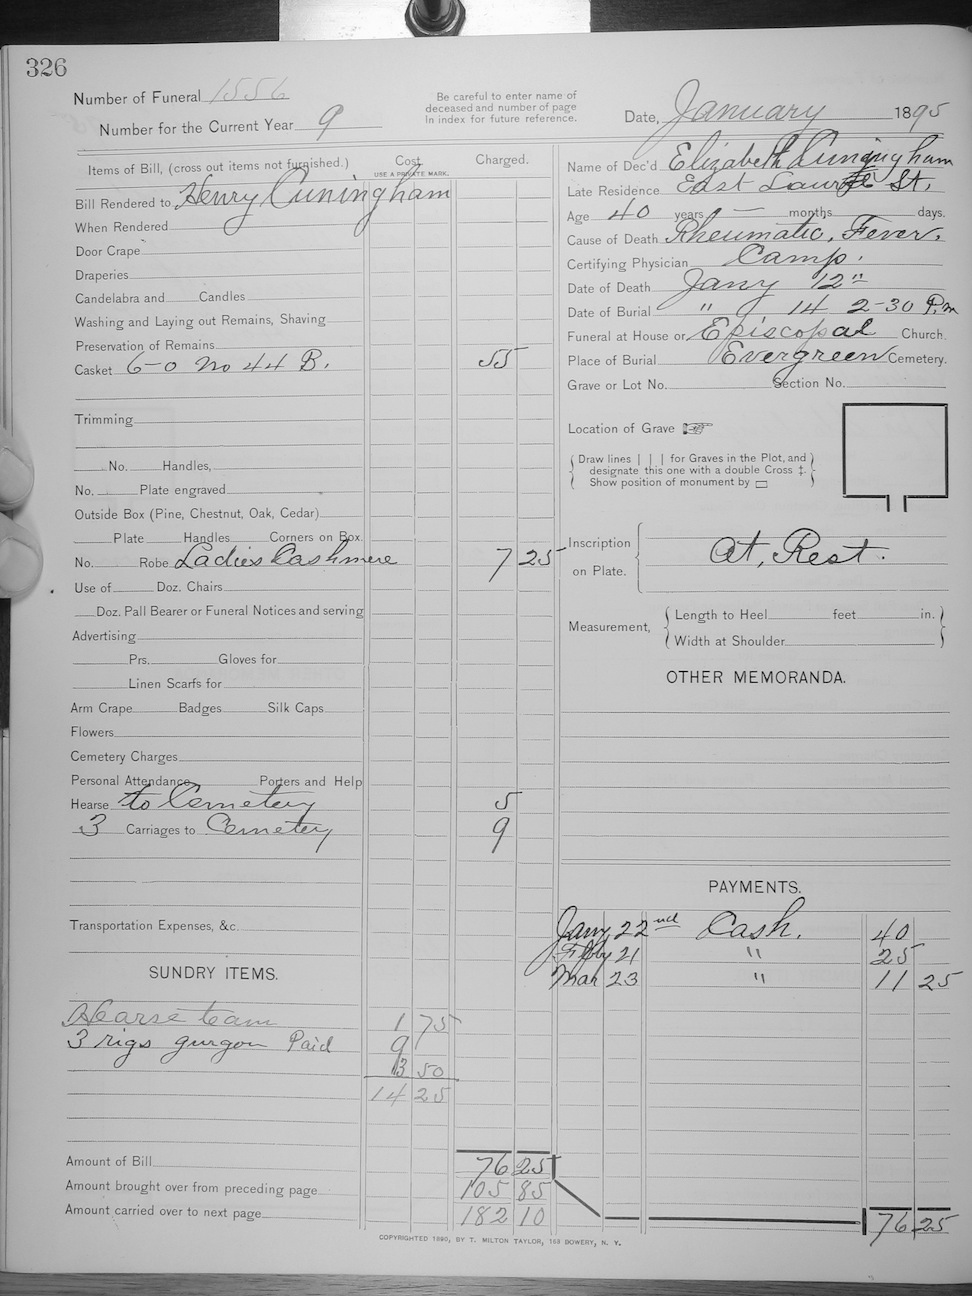 326
Number of Funeral 1556
Number for the Current Year 9
Be careful to enter name of
deceased and number of page
In index for future reference.
Date, January 1895
Items of Bill, (cross out items not furnished.) Cost Charged.
USE A PRIVATE MARK.
Bill Rendered to Henry Cuningham
When Rendered
Door Crape
Draperies
Candelabra and Candles
Washing and Laying out Remains, Shaving
Preservation of Remains
Casket 6-0 No 44 B. 55
Trimming
No. Handles,
No. Plate engraved
Outside Box (Pine, Chestnut, Oak, Cedar)
Plate Handles Corners on Box
No. Robe Ladies Cashmere 7 25
Use of Doz. Chairs
Doz. Pall Bearer or Funeral Notices and serving
Advertising
Prs. Gloves for
Linen Scarfs for
Arm Crape Badges Silk Caps
Flowers
Cemetery Charges
Personal Attendance Porters and Help
Hearse to Cemetery 5
3 Carriages to Cemetery 9
Transportation Expenses, &c.
SUNDRY ITEMS.
Hearse team 1 75
3 rigs Paid 9
3 50
14 25
Amount of Bill 76 25
Amount brought over from preceding page 105 85
Amount carried over to next page 182 10
Name of Dec'd Elizabeth Cuningham
Late Residence East St.
Age 40 years — months days.
Cause of Death Rheumatic, Fever.
Certifying Physician Camp.
Date of Death Jany 12"
Date of Burial " 14 2-30 P.m
Funeral at House or Episcopal Church.
Place of Burial Evergreen Cemetery.
Grave or Lot No. Section No.
Location of Grave ☞
Draw lines | | | for Graves in the Plot, and
designate this one with a double Cross ‡.
Show position of monument by ▭
Inscription
on Plate. At, Rest.
Measurement, Length to Heel feet in.
Width at Shoulder
OTHER MEMORANDA.
PAYMENTS.
Jany 22nd Cash. 40
Feby 21 " 25
Mar 23 " 11 25
76 25
COPYRIGHTED 1890, BY T. MILTON TAYLOR, 158 BOWERY, N. Y.